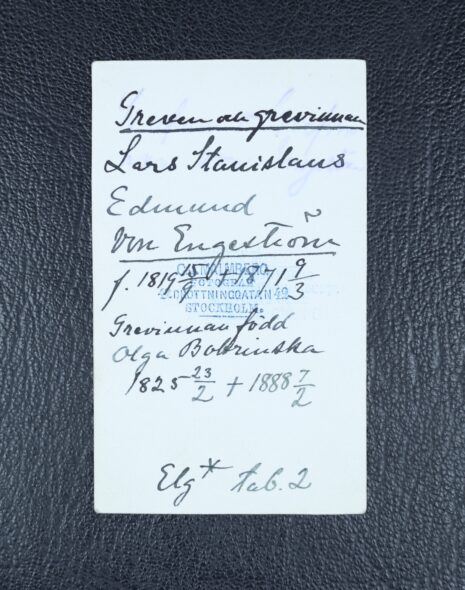 Greven och grevinnan
Lars Stanislaus
Edmund
Von Engeström
f. 1819 15/8 + 1871 9/3
FOTOGRAF
DROTTNINGGATAN 42
STOCKHOLM.
Grevinnan född
Olga Bobrinska
1825 23/2 + 1888 7/2
Elg* tab. 2